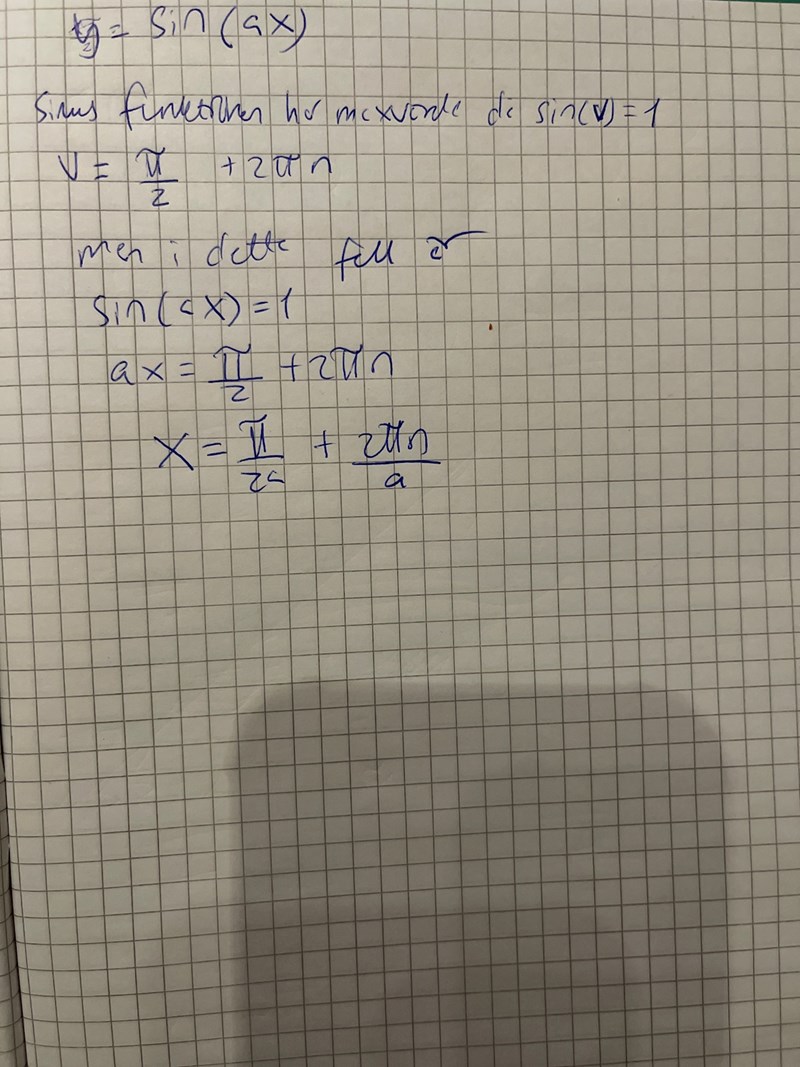 y = sin(ax)
Sinus funktionen har maxvärde då sin(v)=1
v = π/2 + 2πn
men i detta fall är
sin(ax)=1
ax = π/2 + 2πn
x = π/2a + 2πn/a